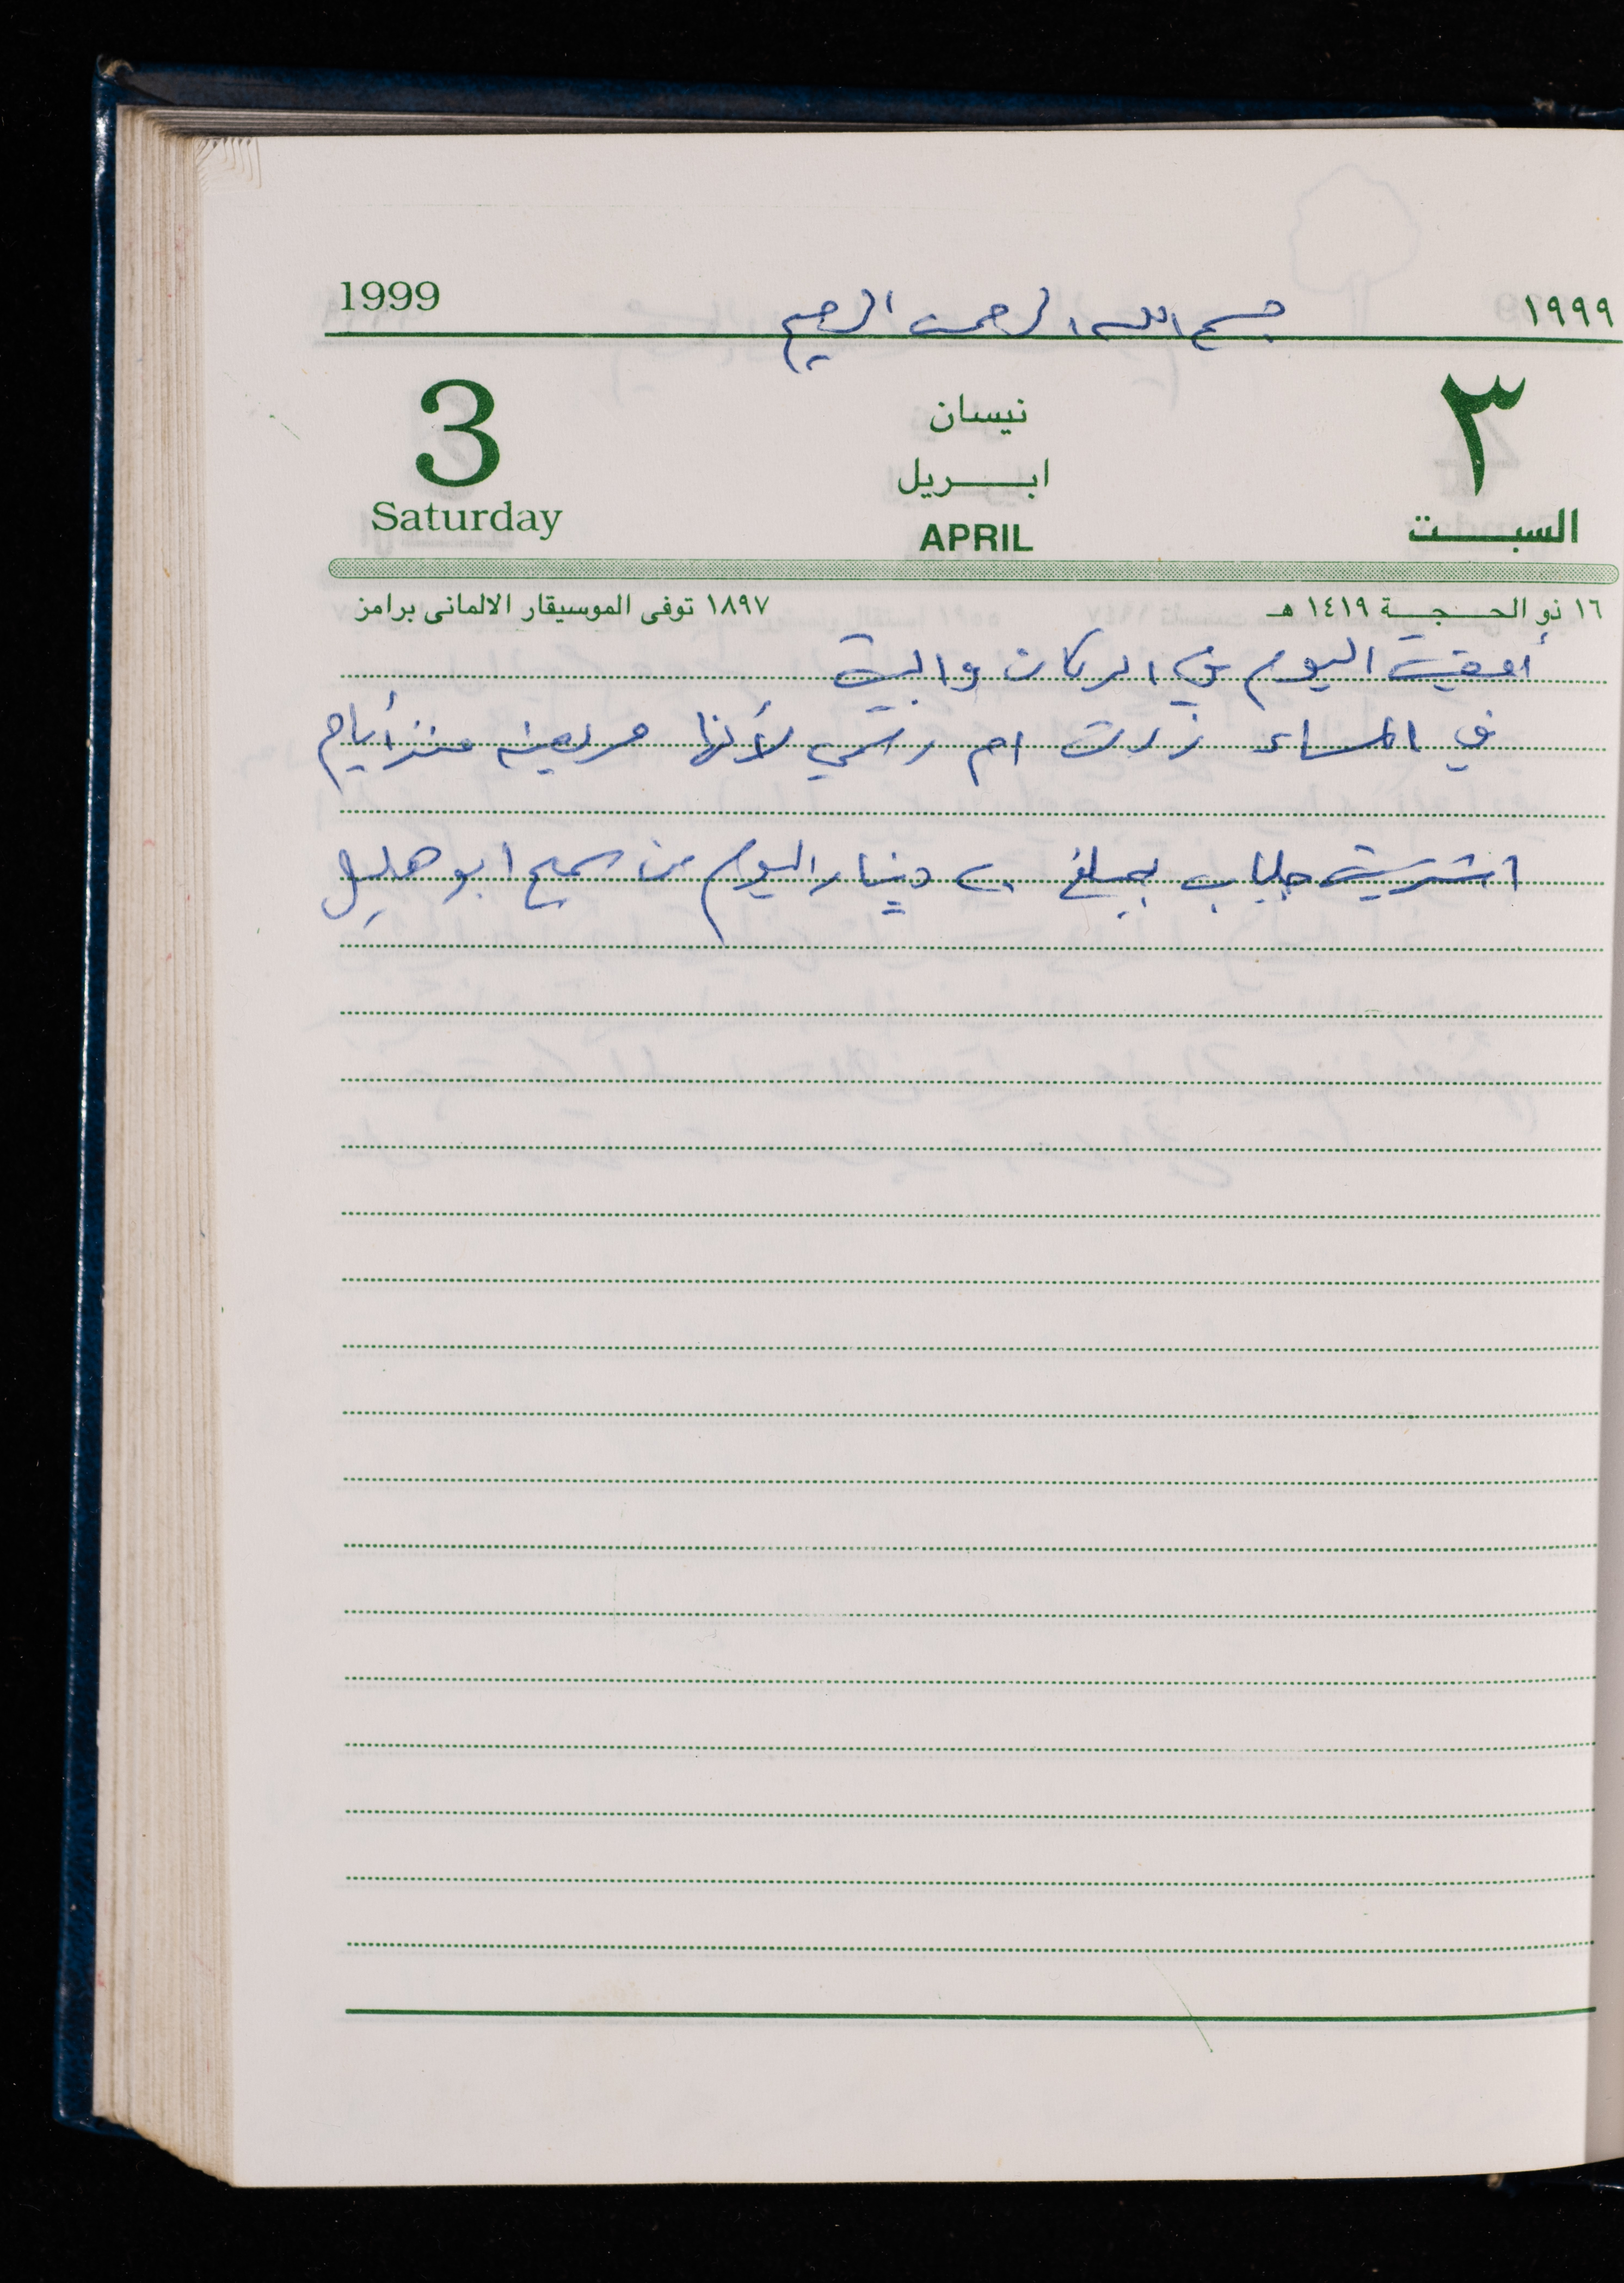 1999 بسم الله الرحمن الرحيم ١٩٩٩
3 نيسان ٣
ابريل
Saturday APRIL السبت
١٦ ذو الحجة ١٤١٩ هـ ١٨٩٧ توفى الموسيقار الالمانى برامز
أمضيت اليوم في الدكان والبيت
في المساء زرت ام رشدي لأنها مريضة منذ أيام
اشتريت جلباب بمبلغ ٢٠ دينار اليوم من سميح ابو هليل